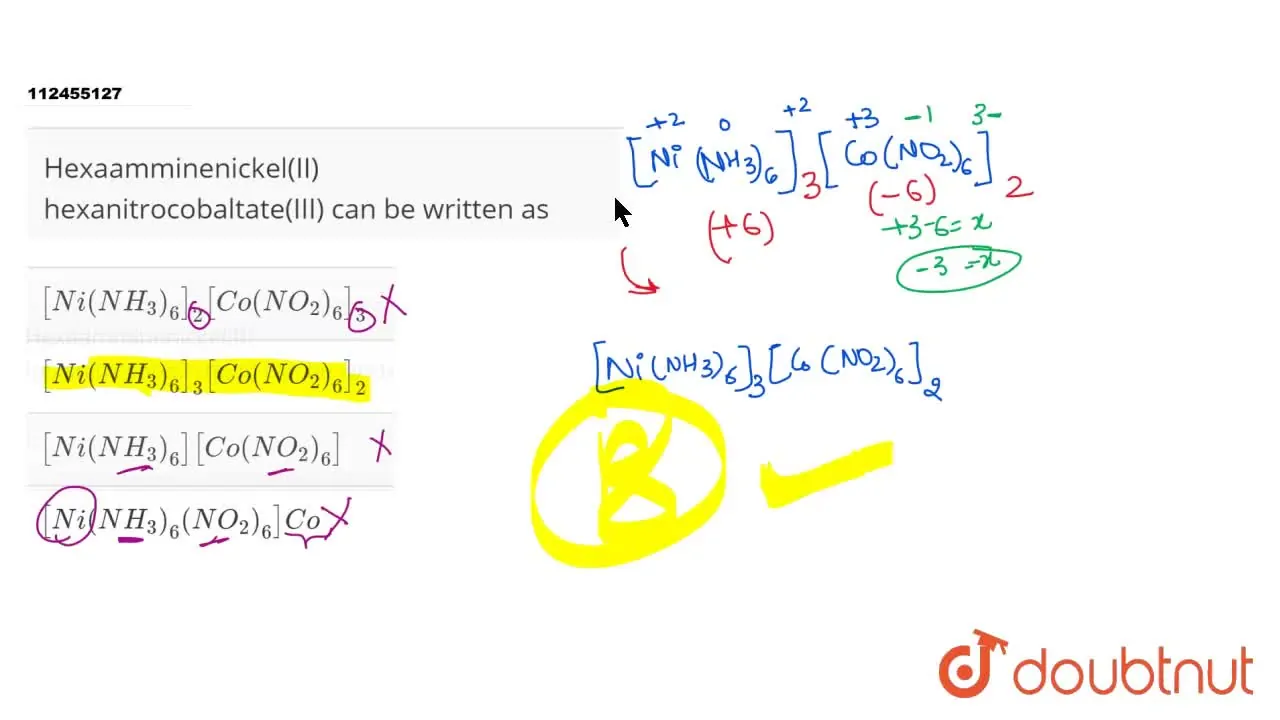 112455127
Hexaamminenickel(II)
hexanitrocobaltate(III) can be written as
[Ni(NH₃)₆]₂[Co(NO₂)₆]₃ X
[Ni(NH₃)₆]₃[Co(NO₂)₆]₂
[Ni(NH₃)₆][Co(NO₂)₆] X
[Ni(NH₃)₆(NO₂)₆]Co X
+2 0 +2 +3 -1 3-
[Ni(NH3)6]3[Co(NO2)6]2
(+6) (-6)
+3-6=x
-3=x
[Ni(NH3)6]3[Co(NO2)6]2
B
doubtnut